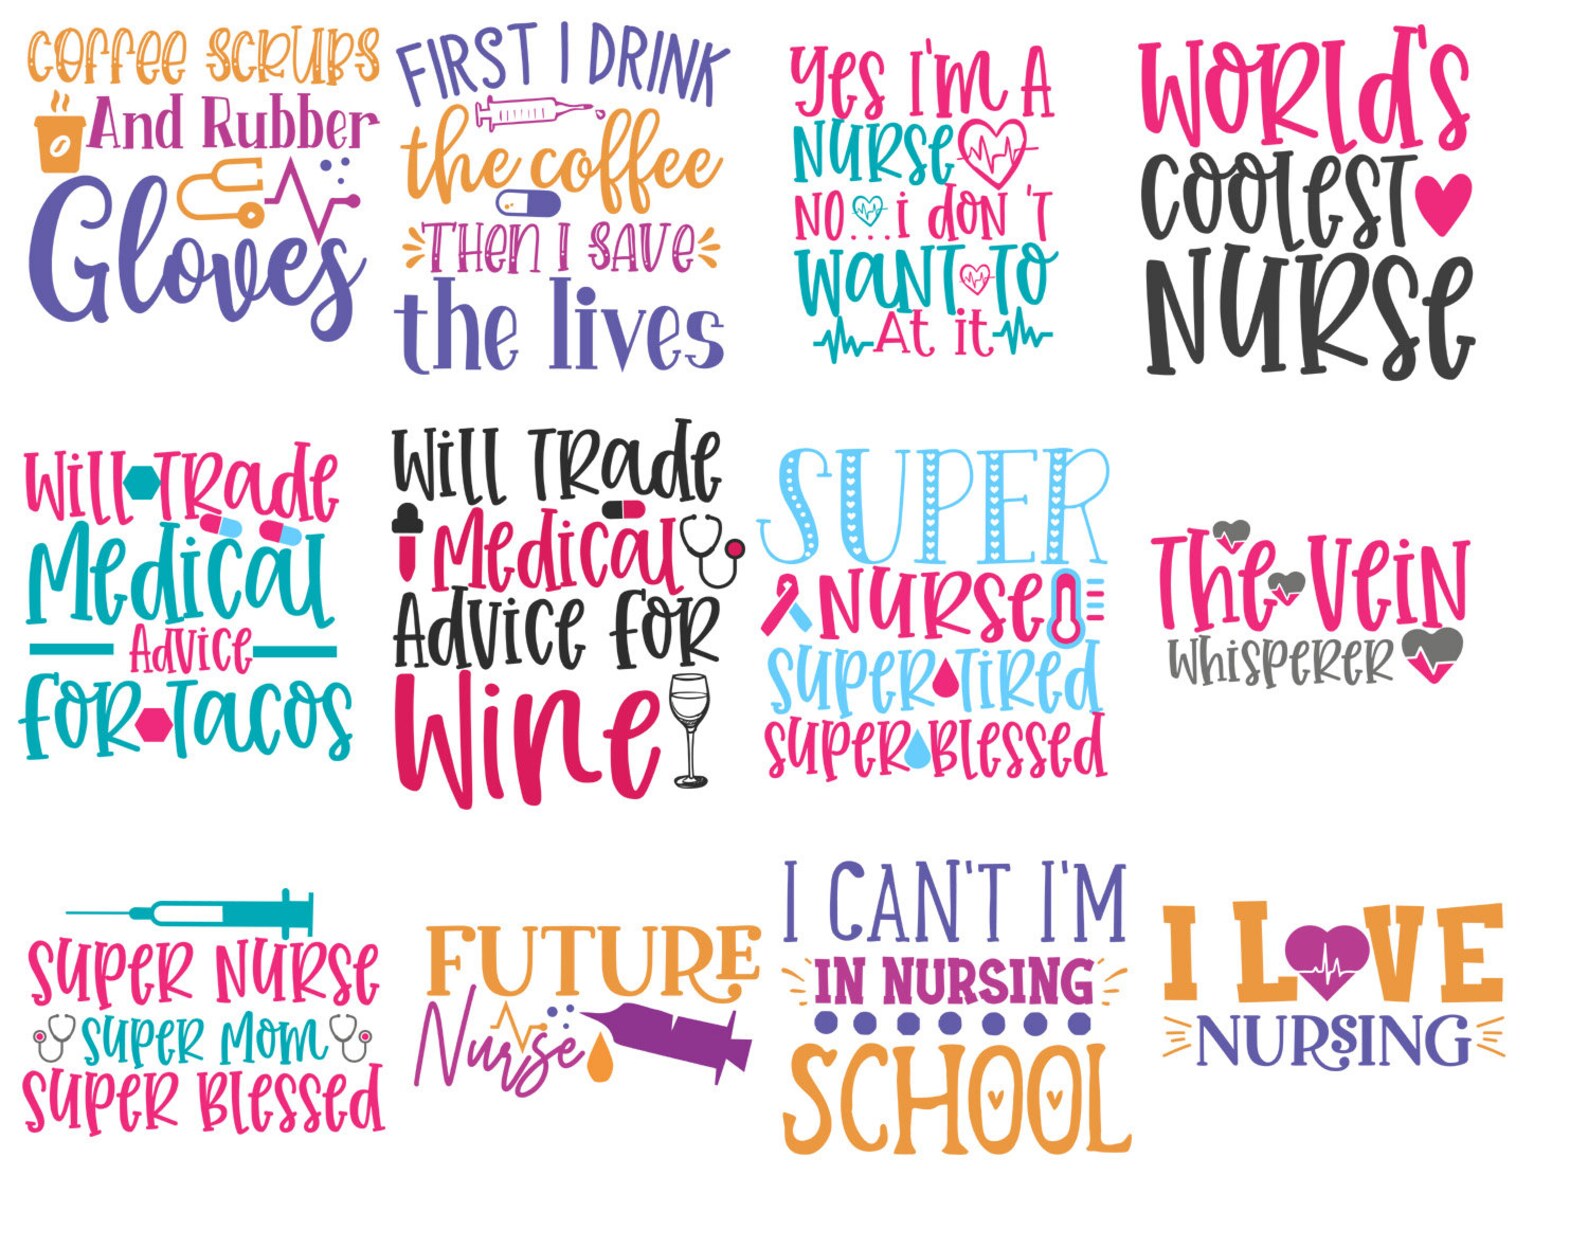 COFFEE SCRUBS
And Rubber
Gloves
FIRST I DRINK
the coffee
THEN I SAVE
the lives
Yes I'M A
NURSE
NO...i doN'T
WANT TO
At it
WORLd's
COOLEST
NURSE
Will TRade
Medical
Advice
FOR Tacos
Will TRade
Medical
Advice FOR
Wine
SUPER
NURSe
SUPER TiRed
SUPER Blessed
The Vein
WhispeReR
SUPER NURSE
SUPER MOM
SUPER Blessed
FUTURE
Nurse
I CAN'T I'M
IN NURSING
SCHOOL
I L VE
NURSING